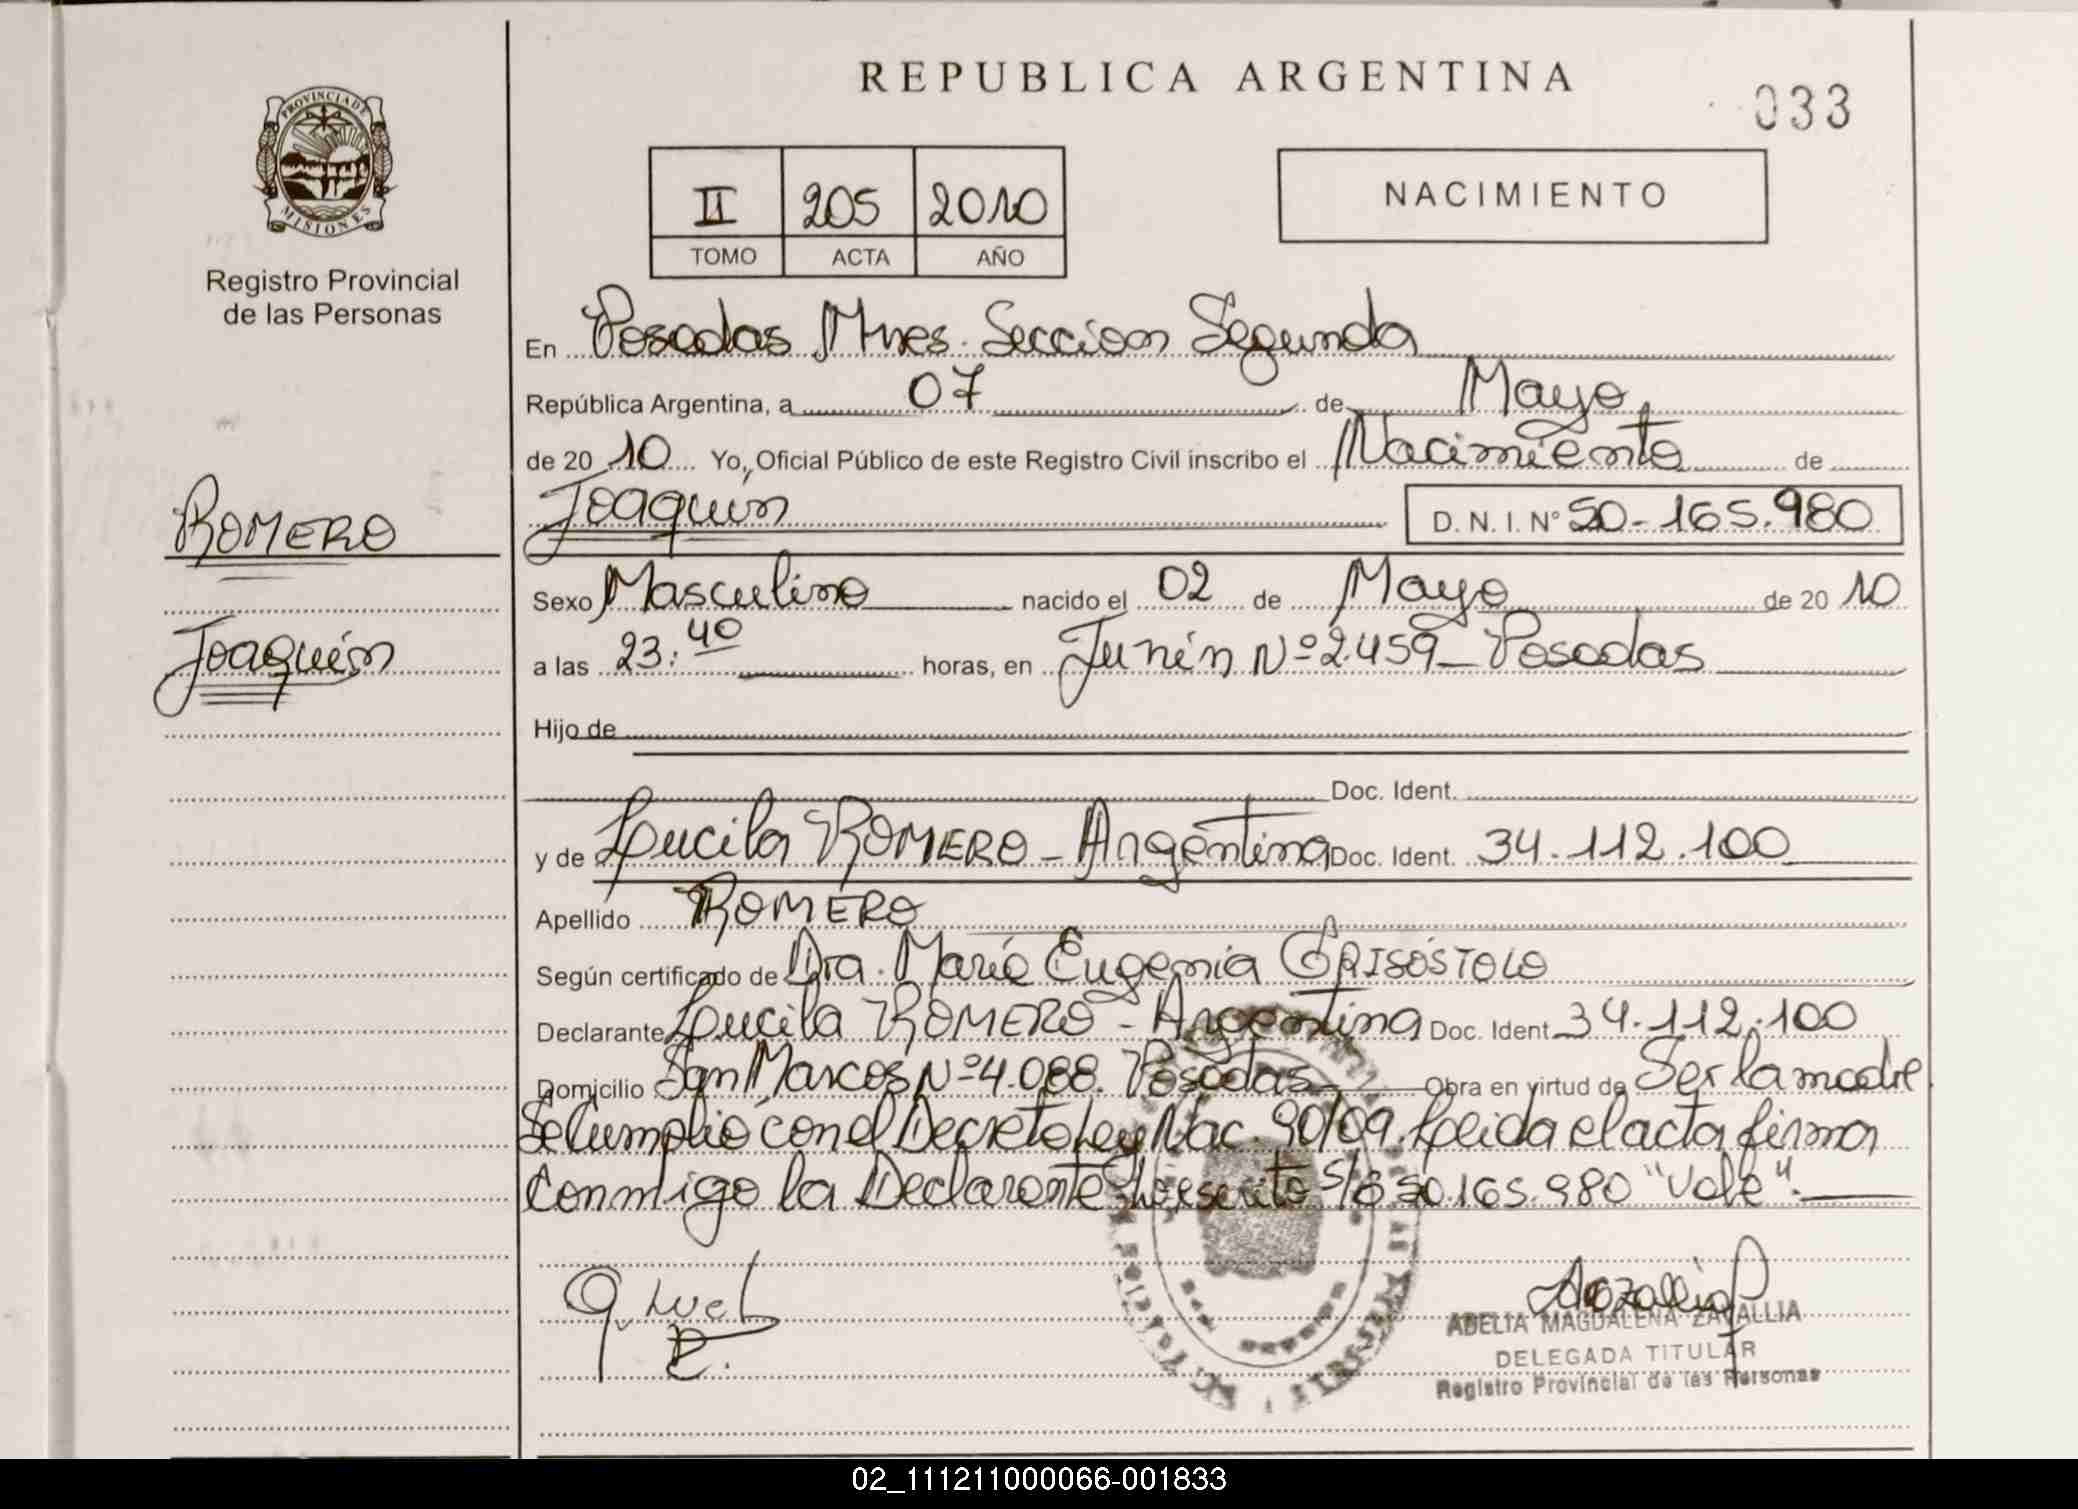 REPUBLICA ARGENTINA
033
PROVINCIA DE
MISIONES
Registro Provincial
de las Personas
II 205 2010
TOMO ACTA AÑO
NACIMIENTO
En Posadas Mnes. Seccion Segunda
República Argentina, a 07 de Mayo
de 20 10 Yo, Oficial Público de este Registro Civil inscribo el Nacimiento de
Joaquín D. N. I. Nº 50-165.980
ROMERO
Joaquín
Sexo Masculino nacido el 02 de Mayo de 20 10
a las 23:40 horas, en Junín Nº 2.459_ Posadas
Hijo de
Doc. Ident.
y de Lucila ROMERO - Argentina Doc. Ident. 34.112.100
Apellido ROMERO
Según certificado de Dra. María Eugenia GRISÓSTOLO
Declarante Lucila ROMERO - Argentina Doc. Ident. 34.112.100
Domicilio San Marcos Nº 4.088. Posadas Obra en virtud de Ser la madre
Se Cumplió con el Decreto Ley Nac. 90/09. Leida el acta firma
Conmigo la Declarante. Lo escrito s/o 50.165.980 "Vale".
ADELIA MAGDALENA ZAVALLIA
DELEGADA TITULAR
Registro Provincial de las Personas
02_111211000066-001833